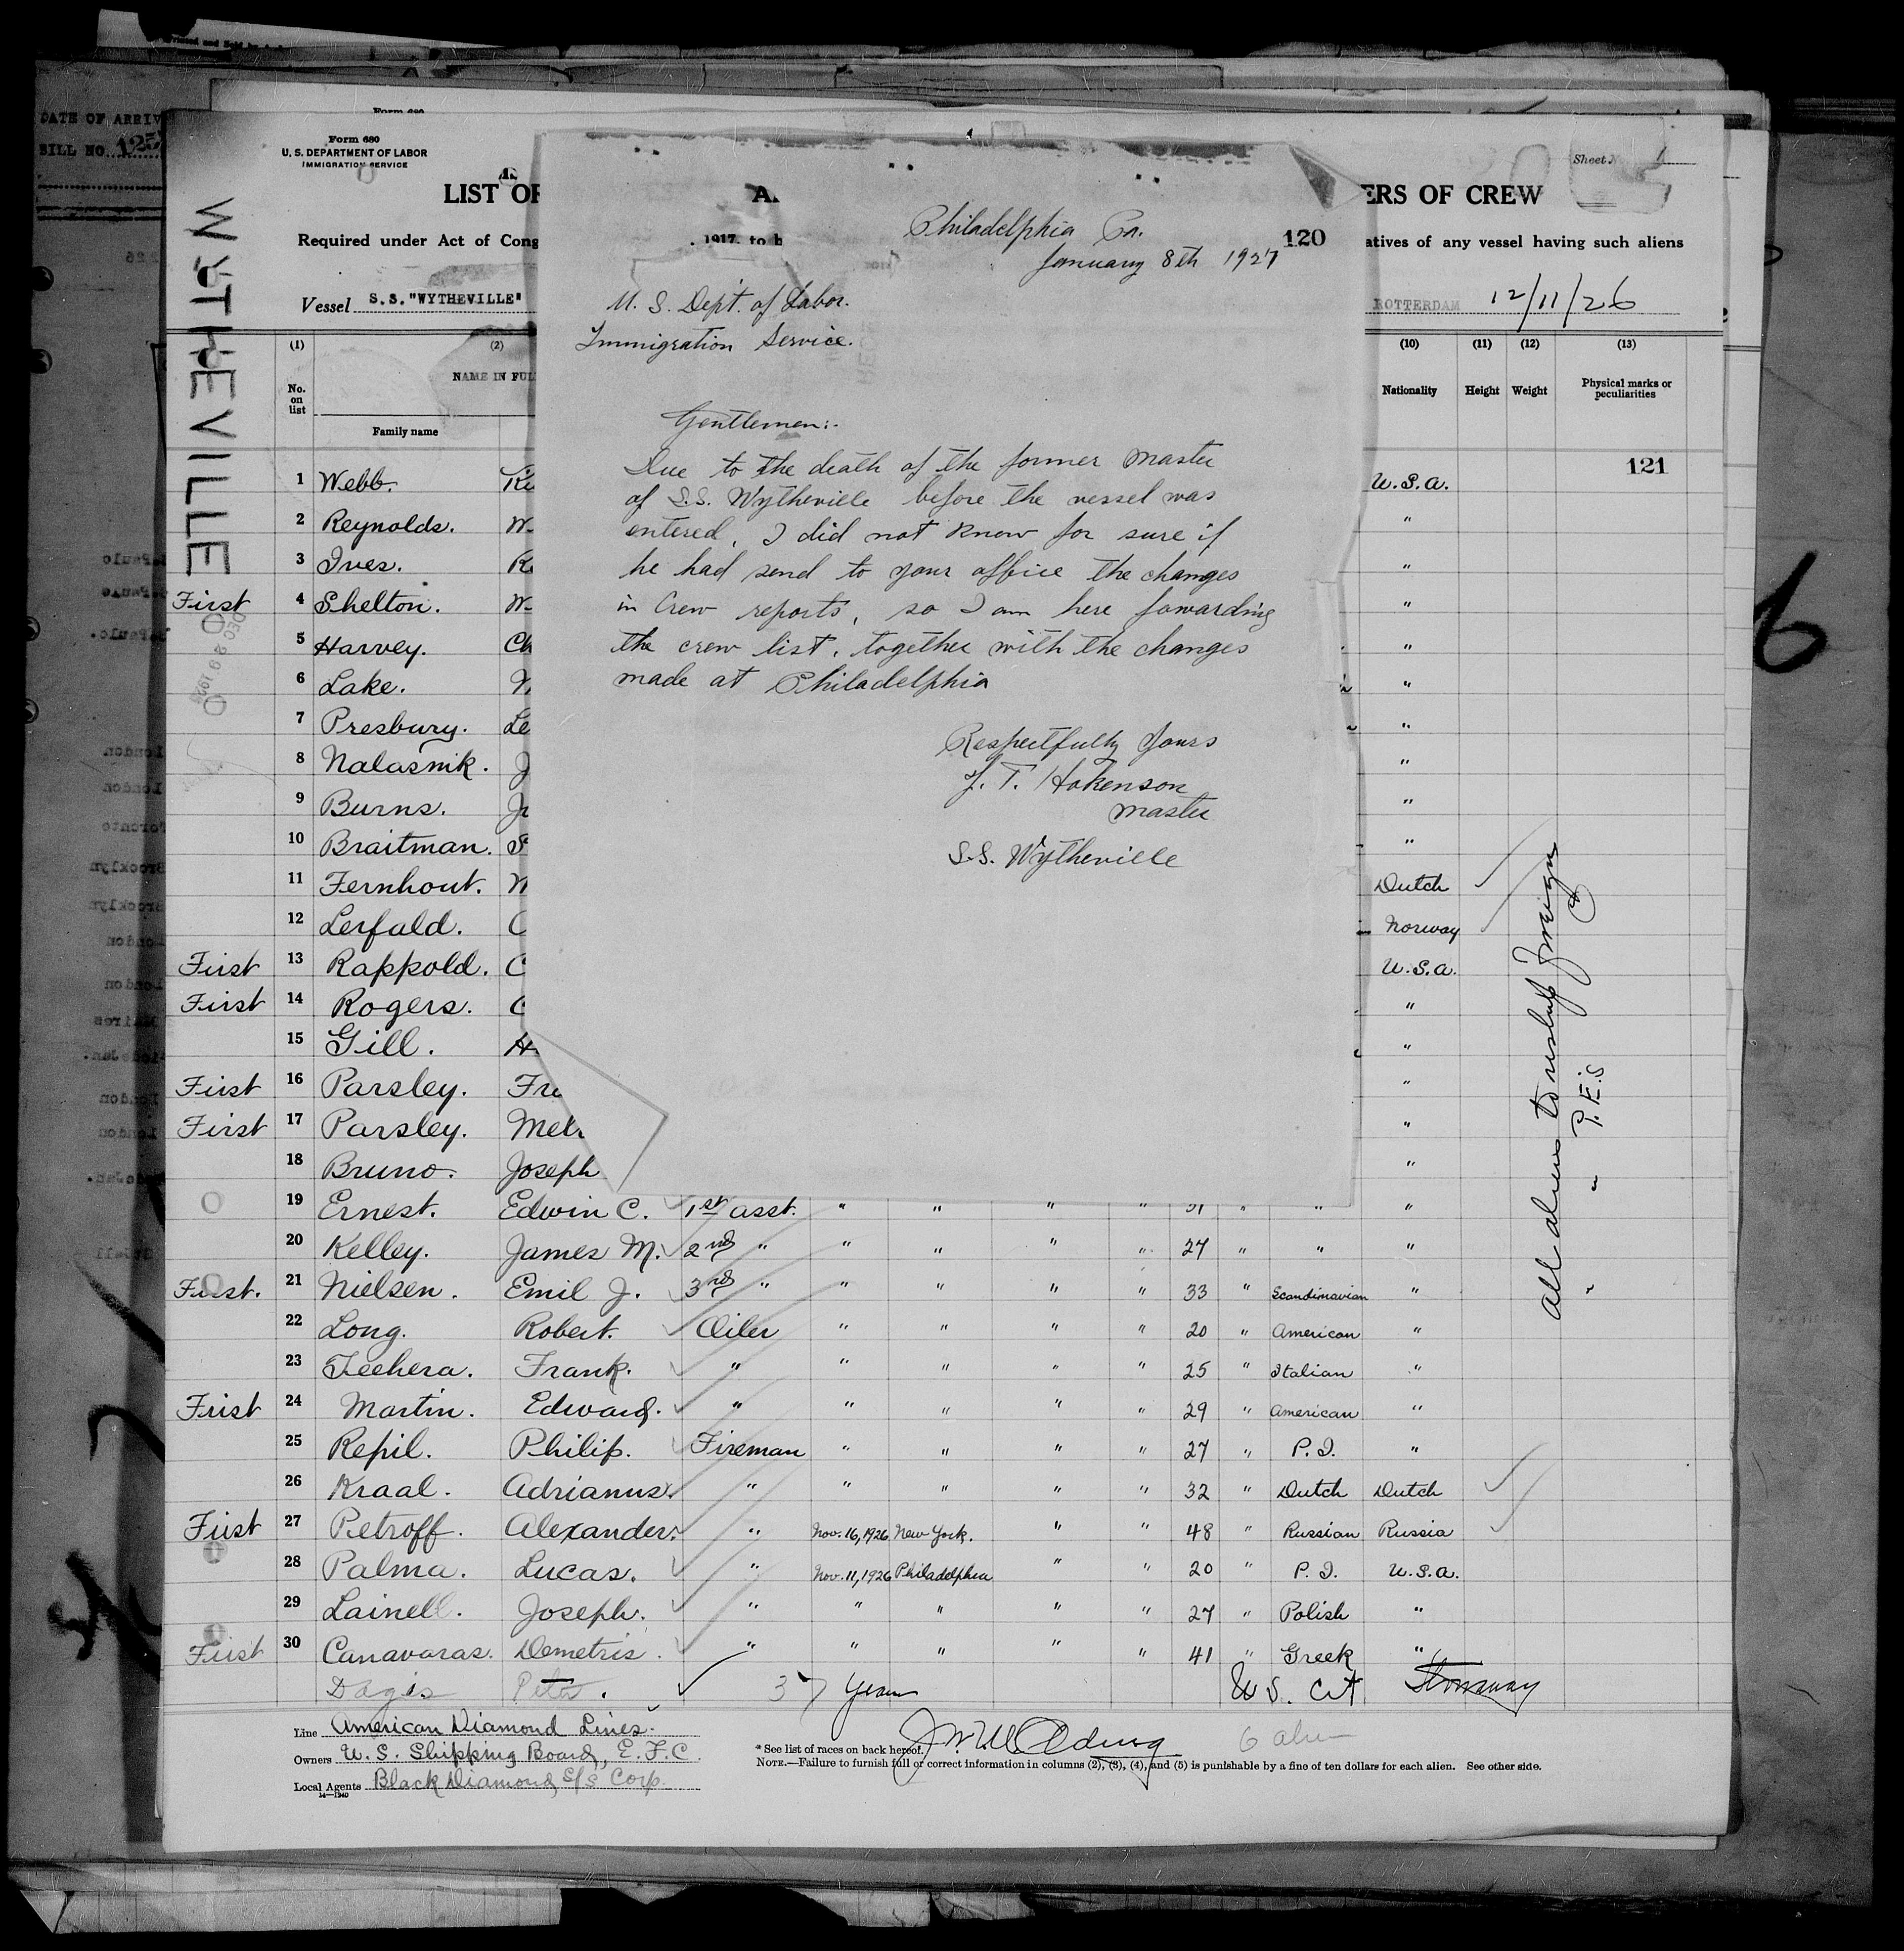 DATE OF ARRIV
BILL NO. 125
Form 680
U. S. DEPARTMENT OF LABOR
IMMIGRATION SERVICE
Sheet 1
LIST OF
ERS OF CREW
Required under Act of Cong
1917, to b
atives of any vessel having such aliens
Vessel S.S. "WYTHEVILLE"
ROTTERDAM 12/11/26
WYTHEVILLE
120
Philadelphia Pa.
January 8th 1927
U. S. Dept. of Labor.
Immigration Service.
Gentlemen:-
Due to the death of the former master
of S.S. Wytheville before the vessel was
entered, I did not know for sure if
he had send to your office the changes
in Crew reports, so I am here fowarding
the crew list, together with the changes
made at Philadelphia
Respectfully Yours
J. T. Hakenson
master
S.S. Wytheville
(1) (2) (10) (11) (12) (13)
No. on list NAME IN FUL Nationality Height Weight Physical marks or peculiarities
Family name
121
1 Webb. U.S.A.
2 Reynolds. W. "
3 Ives. "
First 4 Shelton. W. "
5 Harvey. Ch "
6 Lake. "
7 Presbury. Le "
8 Nalasnik. J "
9 Burns. "
10 Braitman. "
11 Fernhout. Dutch
12 Lerfald. Norway
First 13 Rappold. C U.S.A.
First 14 Rogers. C "
15 Gill. H. "
First 16 Parsley. Fre "
First 17 Parsley. Mel "
18 Bruno. Joseph "
19 Ernest. Edwin C. 1st asst. " " " " 31 " " "
20 Kelley. James M. 2nd " " " " " 27 " " "
First. 21 Nielsen. Emil J. 3rd " " " " " 33 " Scandinavian "
22 Long. Robert. Oiler " " " " 20 " American "
23 Techera. Frank. " " " " " 25 " Italian "
Frist 24 Martin. Edward. " " " " " 29 " American "
25 Repil. Philip. Fireman " " " " 27 " P.I. "
26 Kraal. Adrianus. " " " " " 32 " Dutch Dutch
First 27 Petroff. Alexander. " Nov. 16, 1926 New York. " " 48 " Russian Russia
28 Palma. Lucas. " Nov. 11, 1926 Philadelphia " " 20 " P.I. U.S.A.
29 Lainell. Joseph. " " " " " 27 " Polish "
First 30 Canavaras. Demetris. " " " " " 41 " Greek "
Dagis Peter. 37 years U.S. Cit Stowaway
all aliens to reship foreign
" " P.E.S
Line American Diamond Lines.
Owners U.S. Shipping Board, E.F.C.
Local Agents Black Diamond S/S Corp.
14—1240
* See list of races on back hereof.
NOTE.—Failure to furnish full or correct information in columns (2), (3), (4), and (5) is punishable by a fine of ten dollars for each alien. See other side.
6